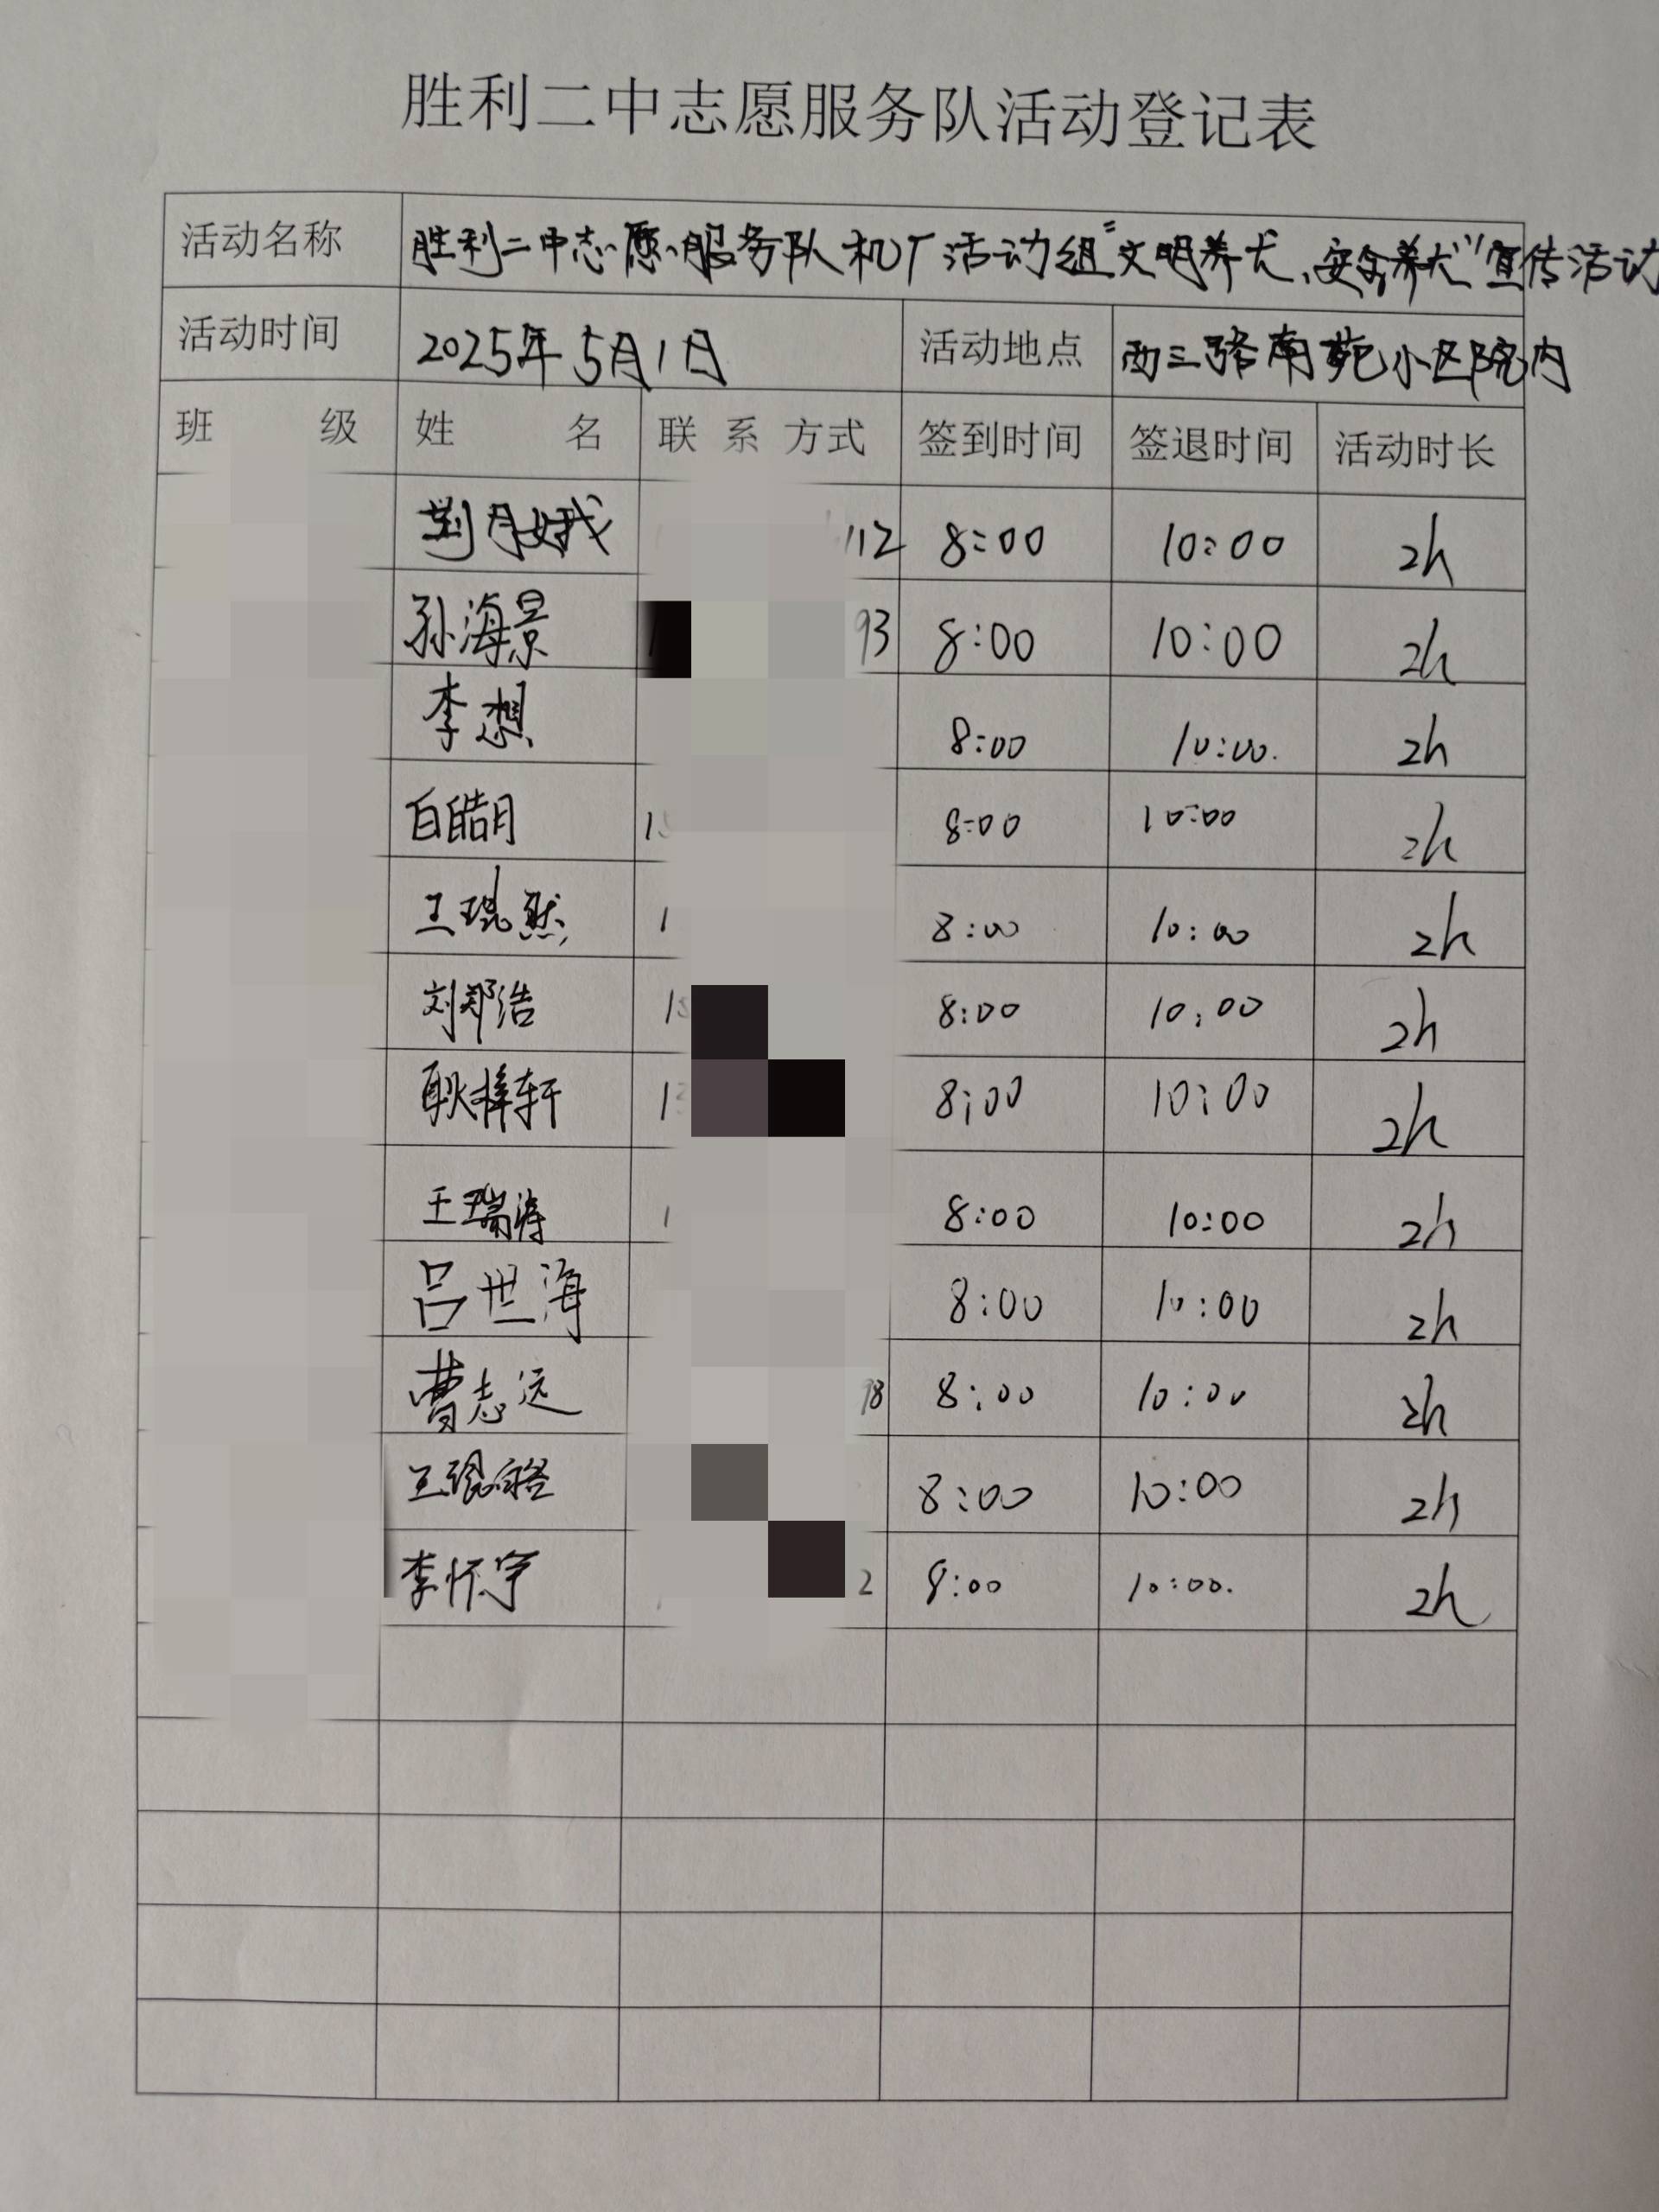 胜利二中志愿服务队活动登记表
活动名称 胜利二中志愿服务队机厂活动组“文明养犬、安全养犬”宣传活动
活动时间 2025年5月1日 活动地点 西三路南苑小区院内
班 级 姓 名 联 系 方式 签到时间 签退时间 活动时长
荆月娥 112 8:00 10:00 2h
孙海景 93 8:00 10:00 2h
李想 8:00 10:00. 2h
白皓月 1 8:00 10:00 2h
王琨然 1 8:00 10:00 2h
刘郑浩 1 8:00 10:00 2h
耿梓轩 1 8:00 10:00 2h
王瑞涛 1 8:00 10:00 2h
吕世海 8:00 10:00 2h
曹志远 98 8:00 10:00 2h
王 8:00 10:00 2h
李怀宇 2 8:00 10:00. 2h